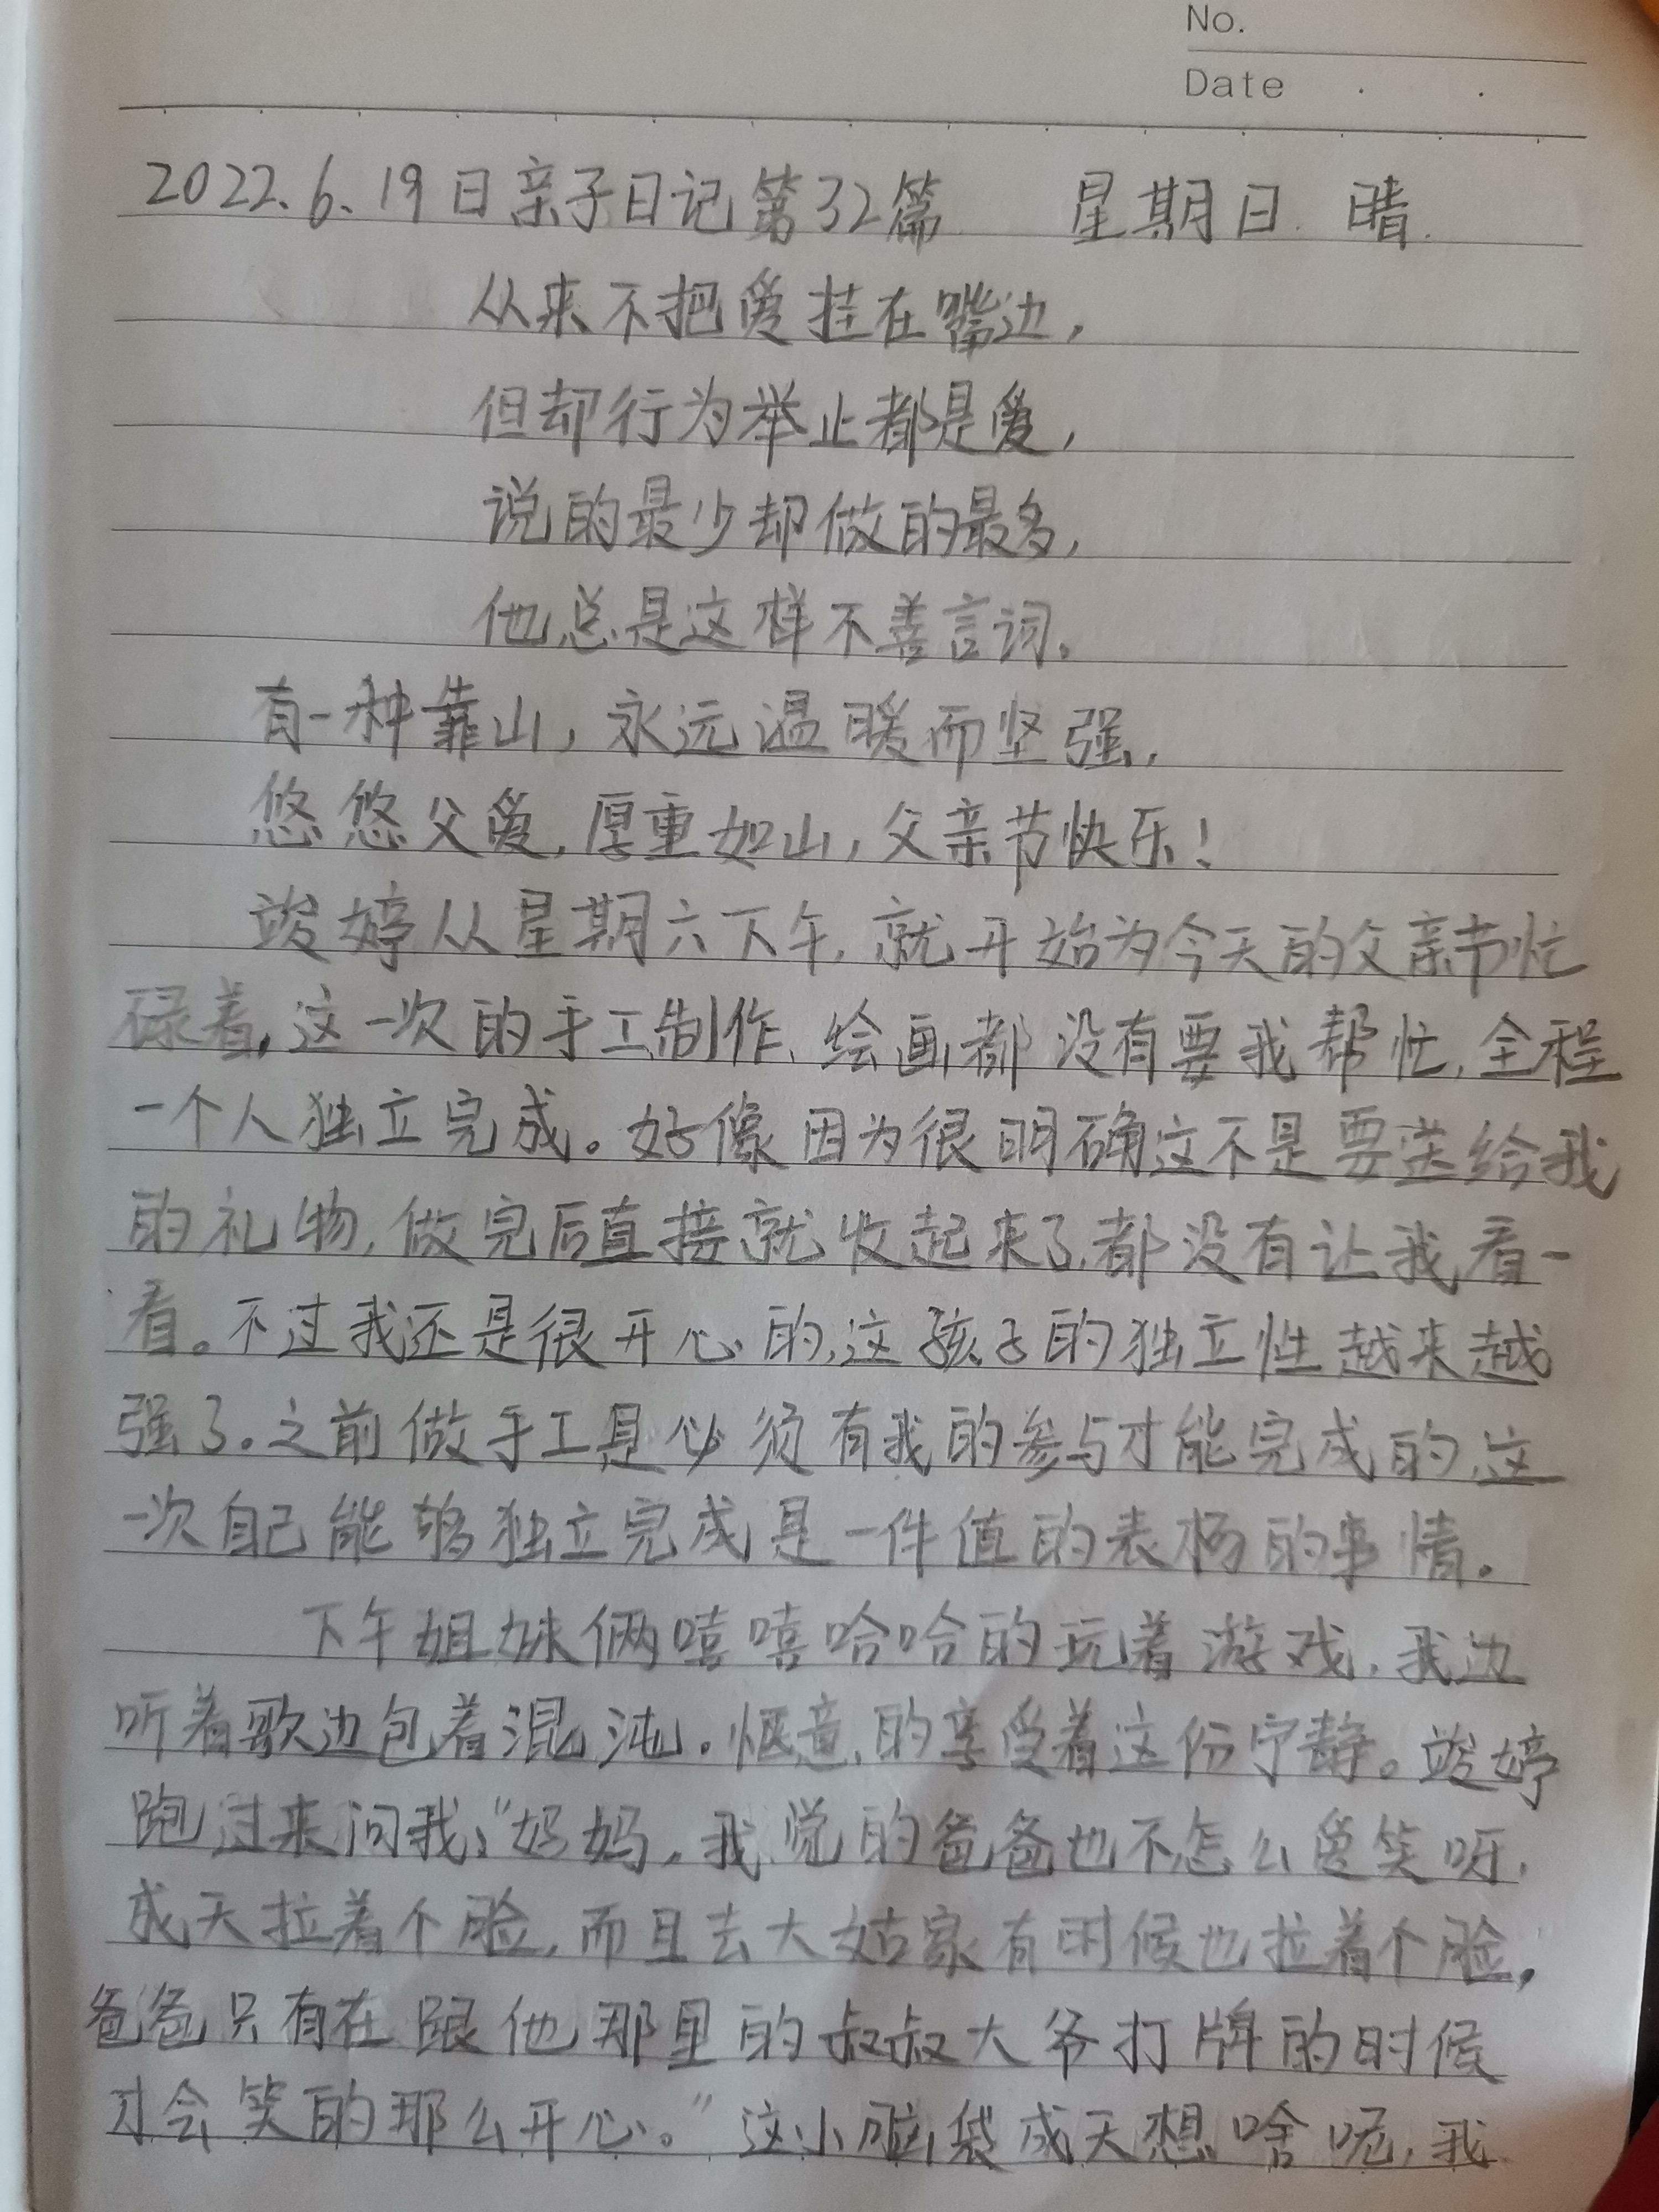 No.
Date
2022.6.19日亲子日记第32篇 星期日 晴.
从来不把爱挂在嘴边,
但却行为举止都是爱,
说的最少却做的最多,
他总是这样不善言词。
有一种靠山,永远温暖而坚强,
悠悠父爱,厚重如山,父亲节快乐!
竣婷从星期六下午,就开始为今天的父亲节忙
碌着,这一次的手工制作、绘画都没有要我帮忙,全程
一个人独立完成。好像因为很明确这不是要送给我
的礼物,做完后直接就收起来了,都没有让我看一
看。不过我还是很开心的,这孩子的独立性越来越
强了。之前做手工是必须有我的参与才能完成的,这
一次自己能够独立完成是一件值的表杨的事情。
下午姐妹俩嘻嘻哈哈的玩着游戏,我边
听着歌边包着混沌,惬意的享受着这份宁静。竣婷
跑过来问我:"妈妈,我觉的爸爸也不怎么爱笑呀,
成天拉着个脸,而且去大姑家有时候也拉着个脸,
爸爸只有在跟他那里的叔叔大爷打牌的时候
才会笑的那么开心。"这小脑袋成天想啥呢,我